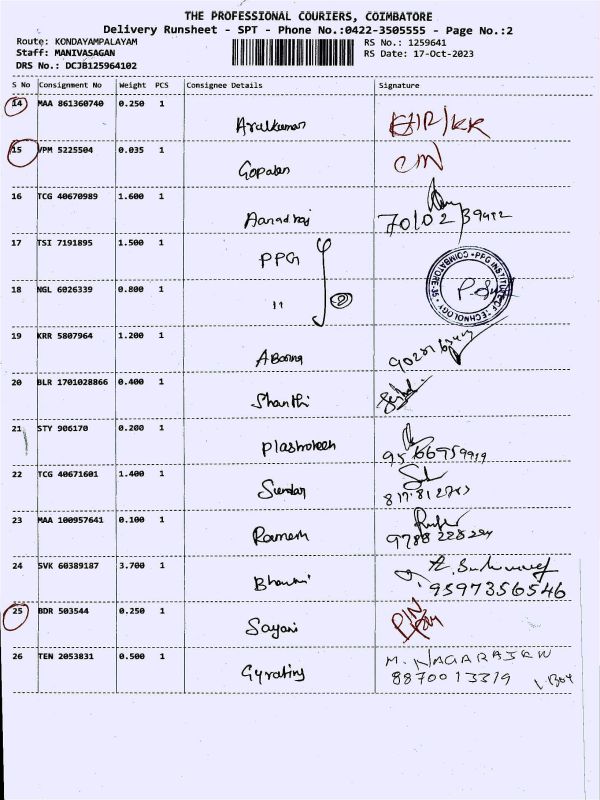 THE PROFESSIONAL COURIERS, COIMBATORE
Delivery Runsheet - SPT - Phone No.:0422-3505555 - Page No.:2
Route: KONDAYAMPALAYAM RS No.: 1259641
Staff: MANIVASAGAN RS Date: 17-Oct-2023
DRS No.: DCJB125964102
S No Consignment No Weight PCS Consignee Details Signature
14 MAA 861360740 0.250 1
Aralkumar
15 VPM 5225504 0.035 1
Gopalan
16 TCG 40670989 1.600 1
Aanadhaj
17 TSI 7191895 1.500 1
PPG
COIMBATORE-35 • PPG INSTITUTE OF TECHNOLOGY
18 NGL 6026339 0.800 1
" 2
19 KRR 5807964 1.200 1
20 BLR 1701028866 0.400 1
Shanthi
21 STY 906170 0.200 1
22 TCG 40671601 1.400 1
Sundar
23 MAA 100957641 0.100 1
Ramesh 9788228294
24 SVK 60389187 3.700 1
9597356546
25 BDR 503544 0.250 1
Sayani
26 TEN 2053831 0.500 1
M. NAGARAJEN
8870013319